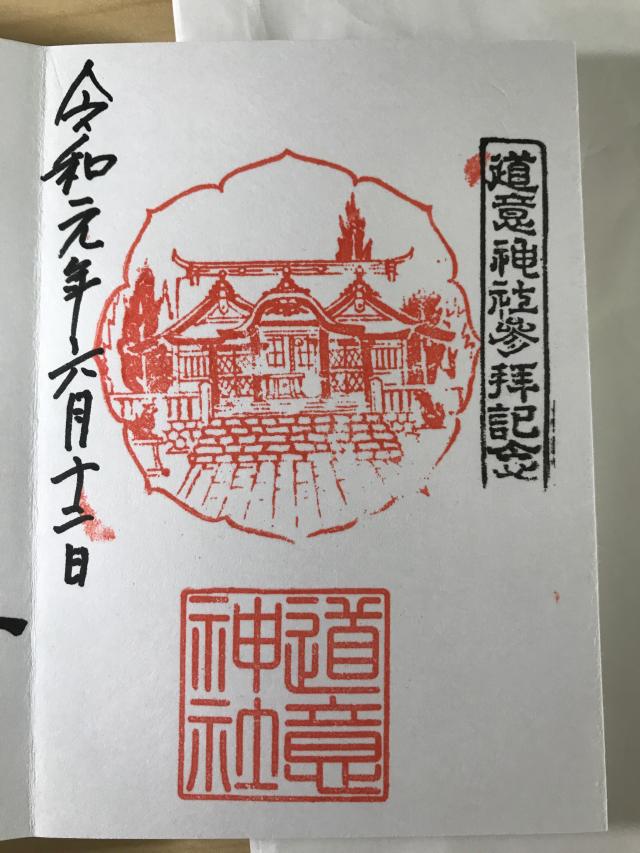 道意神社参拜記念
令和元年六月十二日
道意
神社